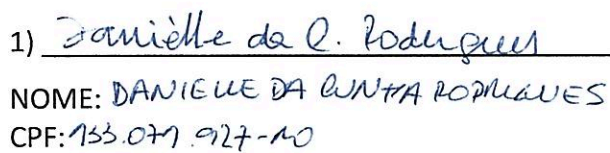 1) Danièlle da C. Rodrigues
NOME: DANIELLE DA CUNHA RODRIGUES
CPF: 133.071.927-10